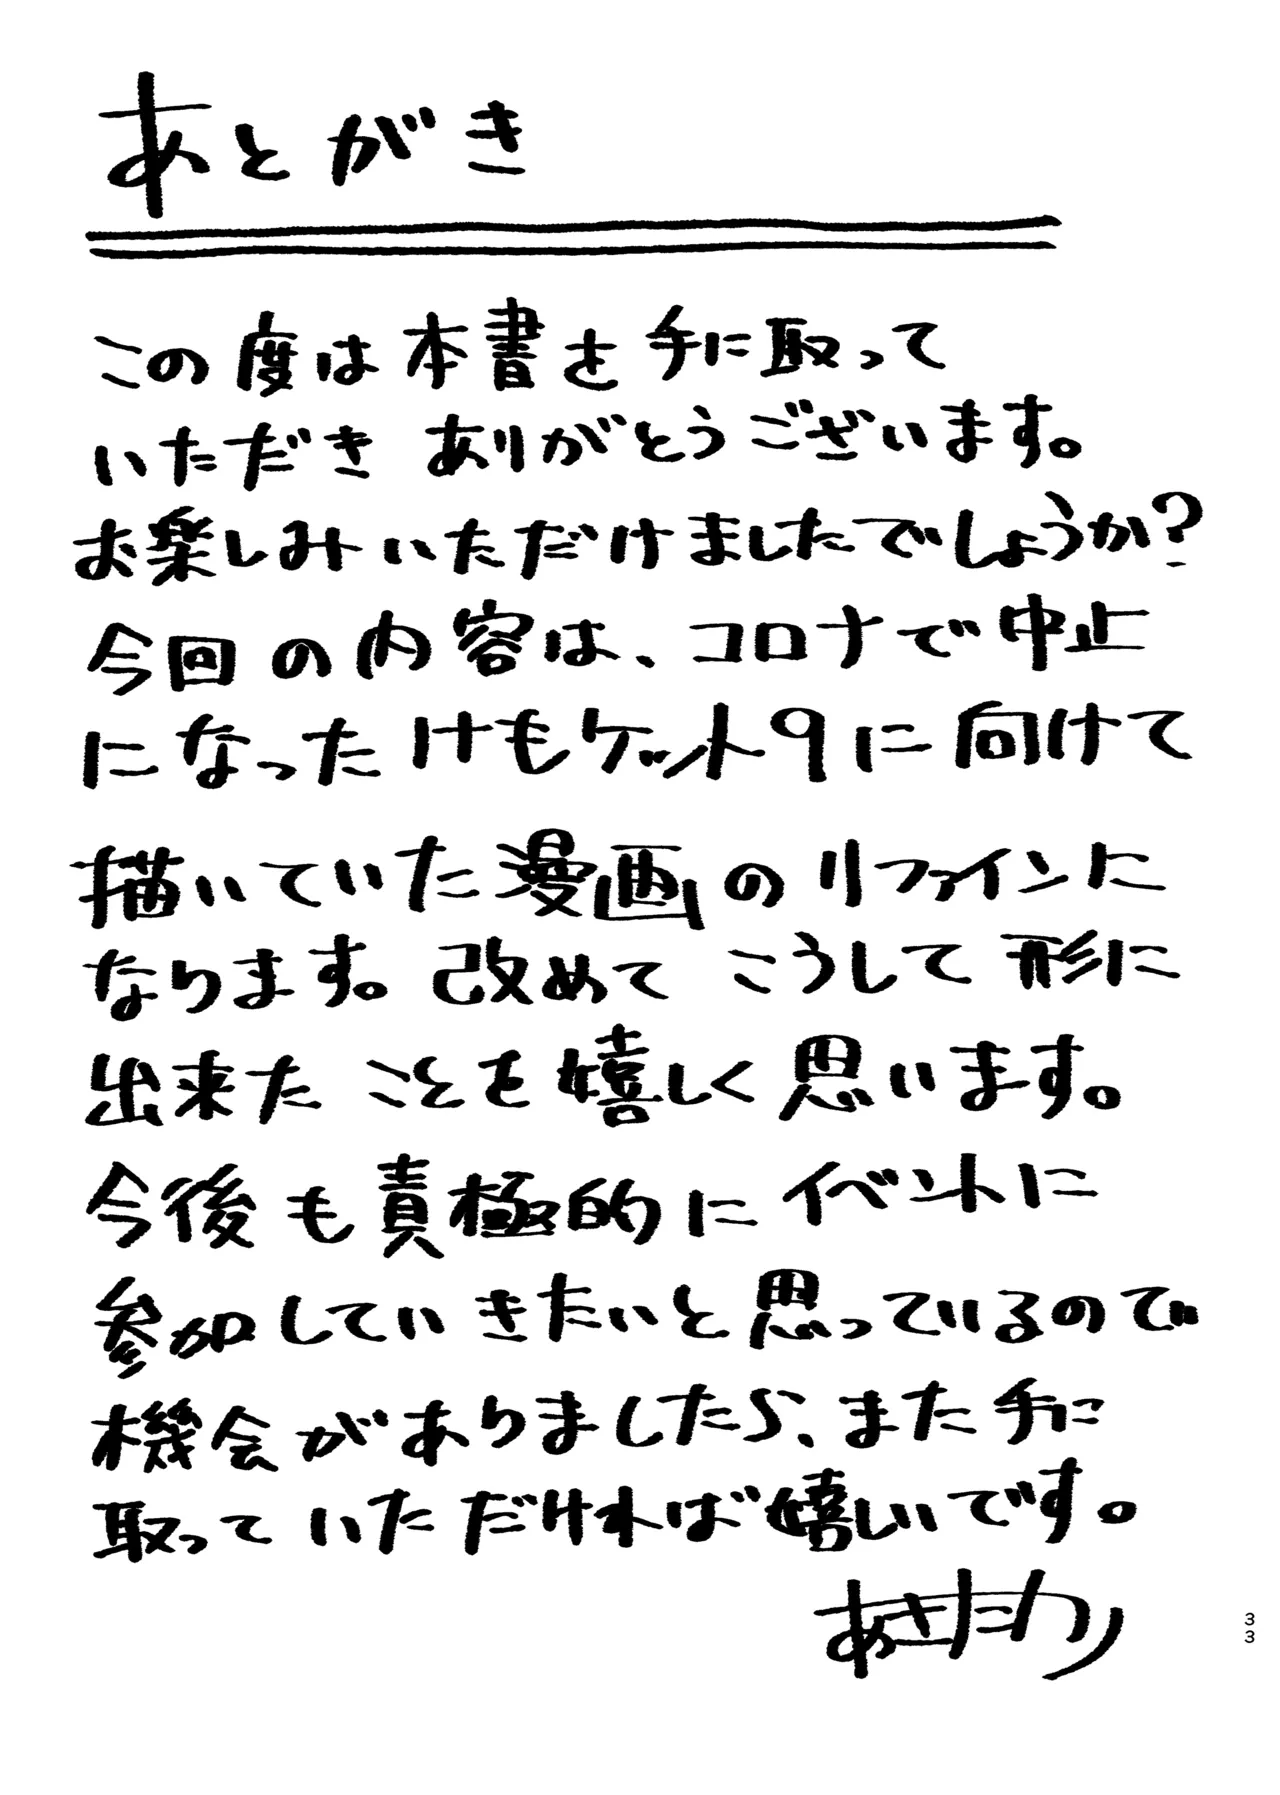 あとがき
この度は本書を手に取って
いただきありがとうございます。
お楽しみいただけましたでしょうか?
今回の内容は、コロナで中止
になったけもケット9に向けて
描いていた漫画のリファインに
なります。改めてこうして形に
出来たことを嬉しく思います。
今後も責極的にイベントに
参加していきたいと思っているので
機会がありましたら、また手に
取っていただければ嬉しいです。
あきたわり
33